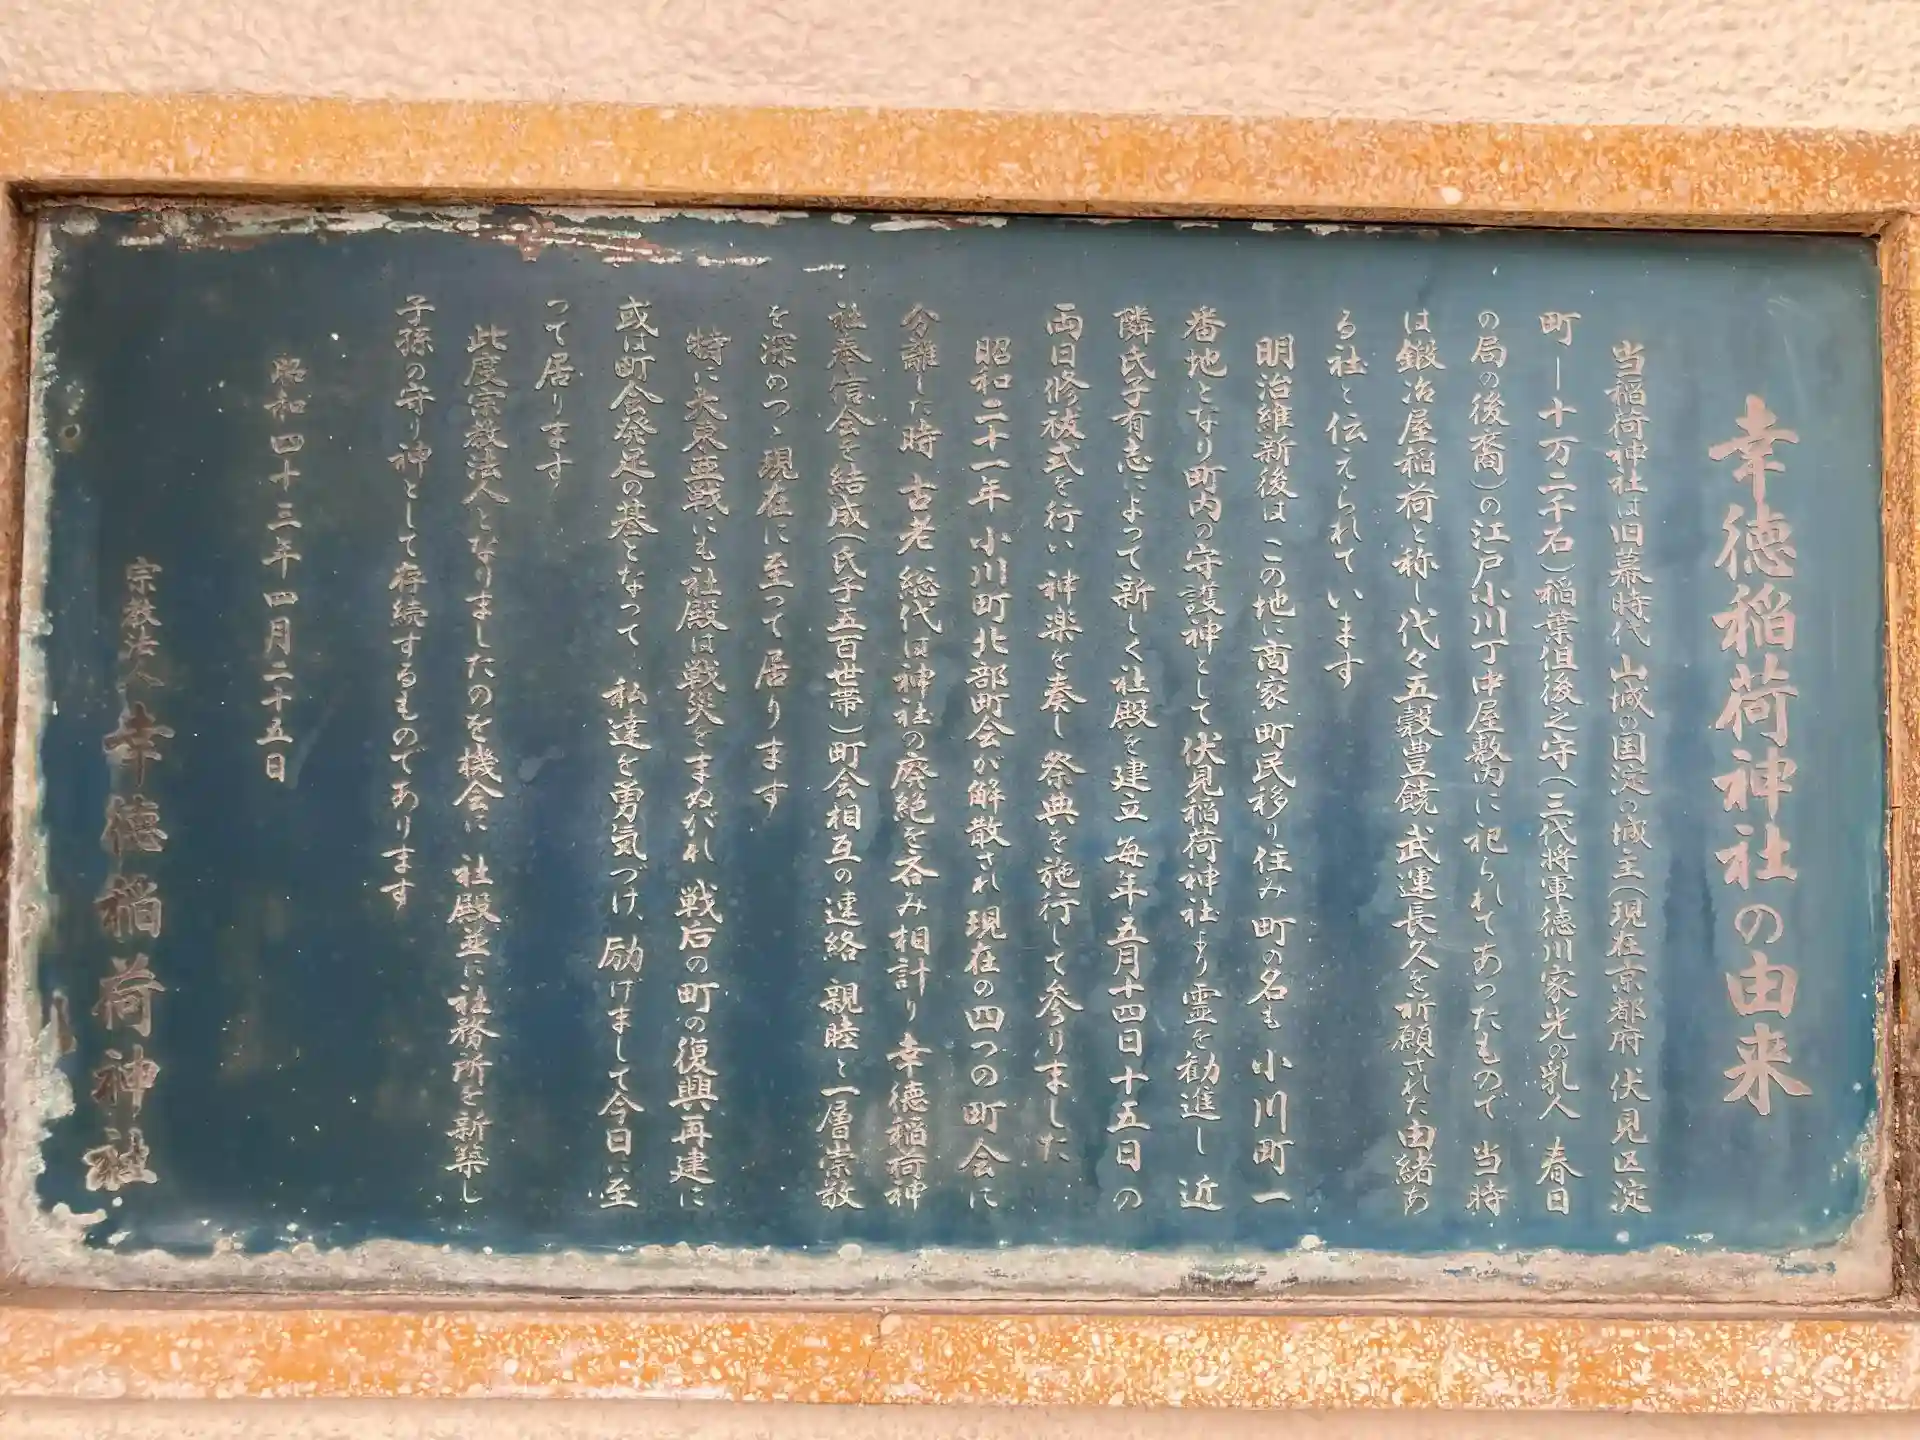 幸徳稲荷神社の由来
当稲荷神社は旧幕時代 山城の国淀の城主(現在京都府 伏見区淀
町―十万二千石)稲葉但後之守(三代将軍徳川家光の乳人 春日
の局の後裔)の江戸小川丁中屋敷内に祀られてあったもので 当時
は鍛冶屋稲荷と称し代々五穀豊饒 武運長久を祈願された由緒あ
る社と伝えられています
明治維新後は この地に商家 町民移り住み 町の名も 小川町一
番地となり町内の守護神として伏見稲荷神社より霊を勧進し 近
隣氏子有志によって新しく社殿を建立 毎年五月十四日十五日の
両日修祓式を行い 神楽を奏し 祭典を施行して参りました
昭和二十一年 小川町北部町会が解散され 現在の四つの町会に
分離した時 古老 総代は神社の廃絶を呑み相計り 幸徳稲荷神
社奉信会を結成(氏子五百世帯)町会相互の連絡 親睦と一層崇敬
を深めつゝ現在に至って居ります
特に大東亜戦にも社殿は戦災をまぬがれ 戦后の町の復興再建に
或は町会発足の基となって 私達を勇気づけ、励けまして今日に至
って居ります
此度宗教法人となりましたのを機会に 社殿並に社務所を新築し
子孫の守り神として存続するものであります
昭和四十三年四月二十五日
宗教法人 幸徳稲荷神社